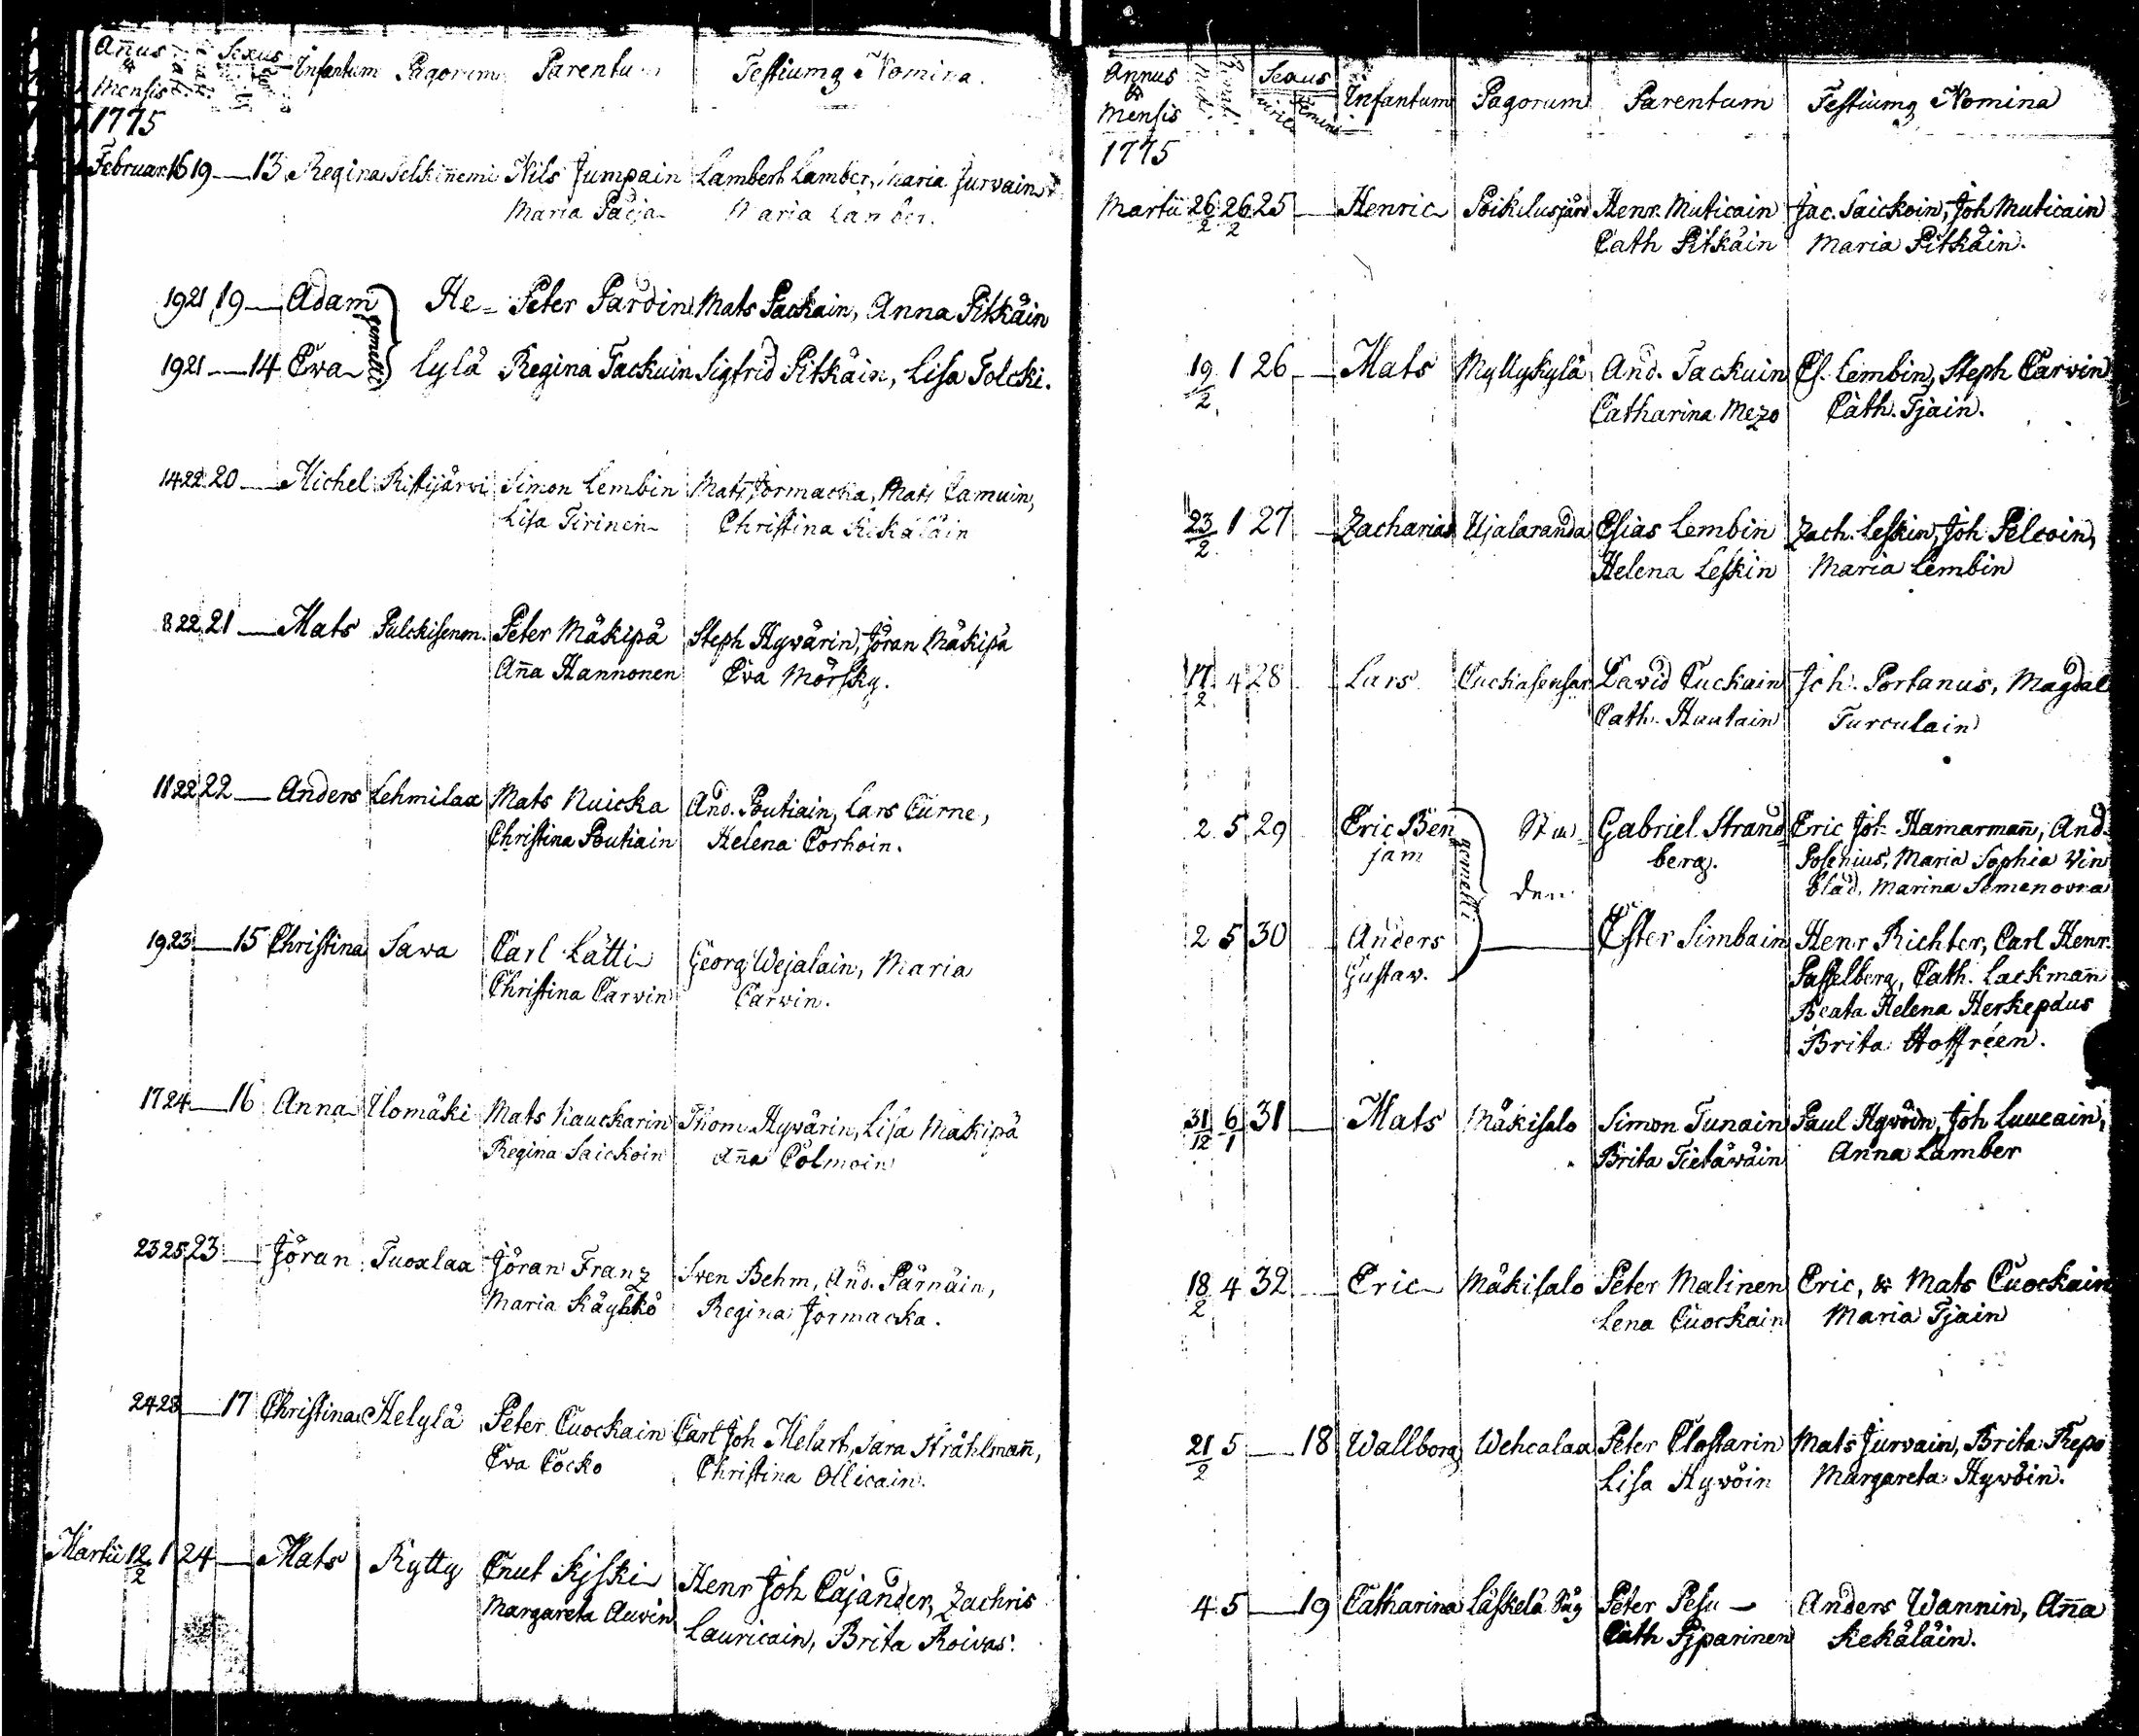 Annus & Mensis Sexus Infantum Pagorum Parentu Testiumq Nomina.
1775
Februar. 16 19 — 13 Regina Selkinnemi Nils Jumpain Lambert Lamber, Maria Jurvain
Maria Päija Maria Lamber.
19 21 19 — Adam He= Peter Parvin Mats Packain, Anna Pitkäin
gemelli
19 21 — 14 Eva lylä Regina Tackuin Sigfrid Pitkäin, Lisa Tolcki.
14 22 20 — Michel Ristijärvi Simon Lembin Mats Jormacka, Mats Camuin,
Lisa Tirinen Christina Kekäläin
8 22 21 — Mats Pulckisenm. Peter Mäkipä Steph Hywärin, Jöran Mäkipä
Anna Hannonen Eva Mörsky.
11 22 22 — Anders Lehmilax Mats Nuicka And. Poutiain, Lars Curne,
Christina Poutiain Helena Corhoin.
19 23 — 15 Christina Sawa Carl Lätti Georg Wejalain, Maria
Christina Carvin Carvin.
17 24 — 16 Anna Ilomäki Mats Kauckarin Thom. Hywärin, Lisa Mäkipä
Regina Saickoin Anna Colmoin
23 25 23 — Jöran Tuoxlax Jöran Franz Sven Behm, And. Pärnäin,
Maria Käyhkö Regina Jormacka.
24 28 — 17 Christina Helylä Peter Cuockain Carl Joh Melart, Sara Stråhlmann,
Eva Cocko Christina Ollicain.
Martii 12/2 1 24 — Mats Rytty Cnut Kjski Henr Joh Cajander, Zachris
Margareta Auvin Lauricain, Brita Roivas.
Annus & Mensis Sexus Infantum Pagorum Parentum Testiumq Nomina
1775
Martii 26/2 26/2 25 — Henric Poikelusjärv Henr. Muticain Jac. Saickoin, Joh Muticain
Cath Pitkäin Maria Pitkäin.
19/2 1 26 — Mats Myllykylä And. Tackuin Es. Lembin, Steph Carvin
Catharina Mezo Cath. Tjain.
23/2 1 27 — Zacharias Ujalaranda Esias Lembin Zach. Leskin, Joh Pelcoin,
Helena Leskin Maria Lembin
17/2 4 28 Lars Cuckasensar David Cuckain Joh. Portanus, Magdal
Cath. Huutain Turculain
2 5 29 Eric Ben Sta= Gabriel Strand Eric Joh Hamarmann, And.
jam berg. Polenius, Maria Sophia Vin
gemelli den blad, Marina Semenovna
2 5 30 Anders Ester Simbain Henr Richter, Carl Henr.
Gustav. Passelberg, Cath. Lackmann
Beata Helena Herkepæus
Brita Hoffréen.
31/12 6/1 31 — Mats Mäkisalo Simon Tunain Paul Hyvöin, Joh Luucain,
Brita Tietäväin Anna Lamber
18/2 4 32 — Eric Mäkisalo Peter Malinen Eric, & Mats Cuockain
Lena Cuockain Maria Tjain
21/2 5 — 18 Wallborg Wehcalax Peter Clostarin Mats Jurvain, Brita Repo
Lisa Hyvöin Margareta Hyvöin.
4 5 — 19 Catharina Läskelä Såg Peter Pesu Anders Wannin, Anna
Cath Pjparinen Kekäläin.